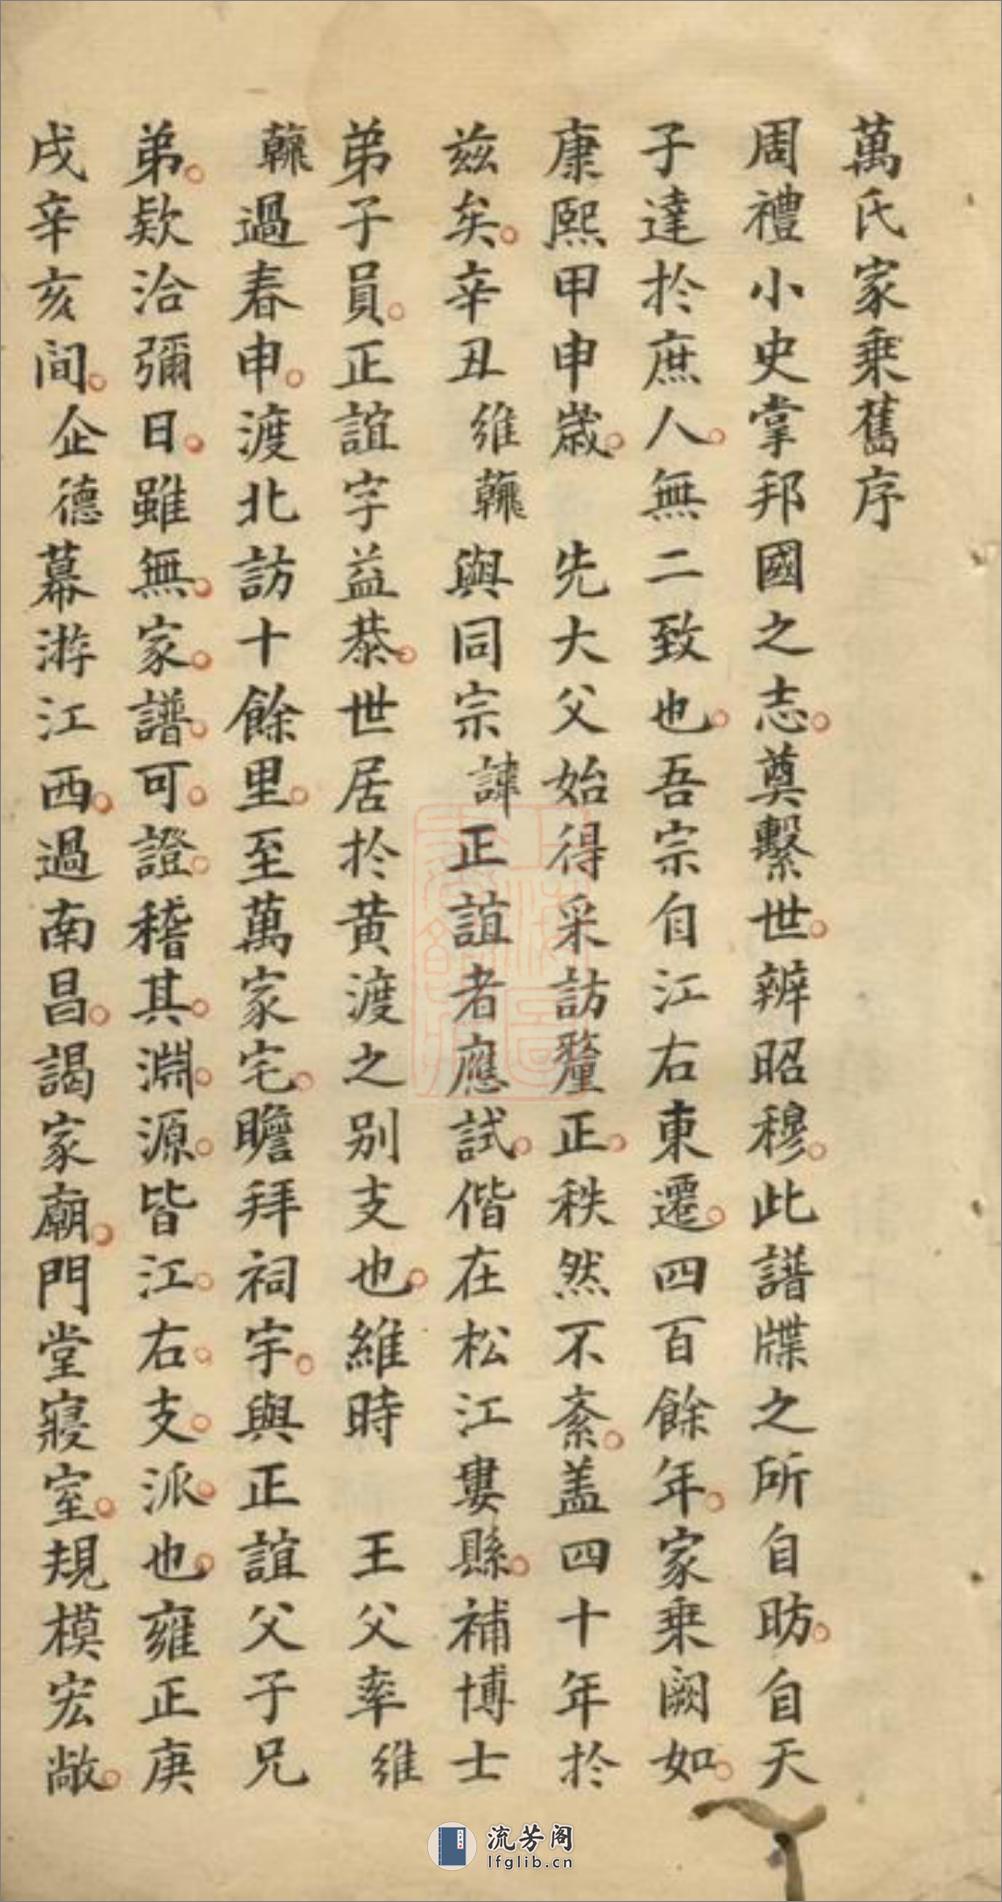 萬氏家乘舊序
周禮小史掌邦國之志奠繫世辨昭穆此譜牒之所自昉自天
子達於庶人無二致也吾宗自江右東遷四百餘年家乘闕如
康熙甲申歲 先大父始得采訪釐正秩然不紊盖四十年於
兹矣辛丑維翰與同宗諱正誼者應試偕在松江婁縣補博士
弟子員正誼字益恭世居於黄渡之别支也維時 王父率維
翰過春申渡北訪十餘里至萬家宅瞻拜祠宇與正誼父子兄
弟欵洽彌日雖無家譜可證稽其淵源皆江右支派也雍正庚
戌辛亥间企德幕游江西過南昌謁家廟門堂寢室規模宏敞
流芳阁
lfglib.cn